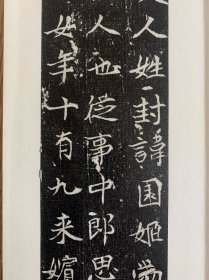 人姓封諱園姬勃
人也從事中郎思
女年十有九来嬪